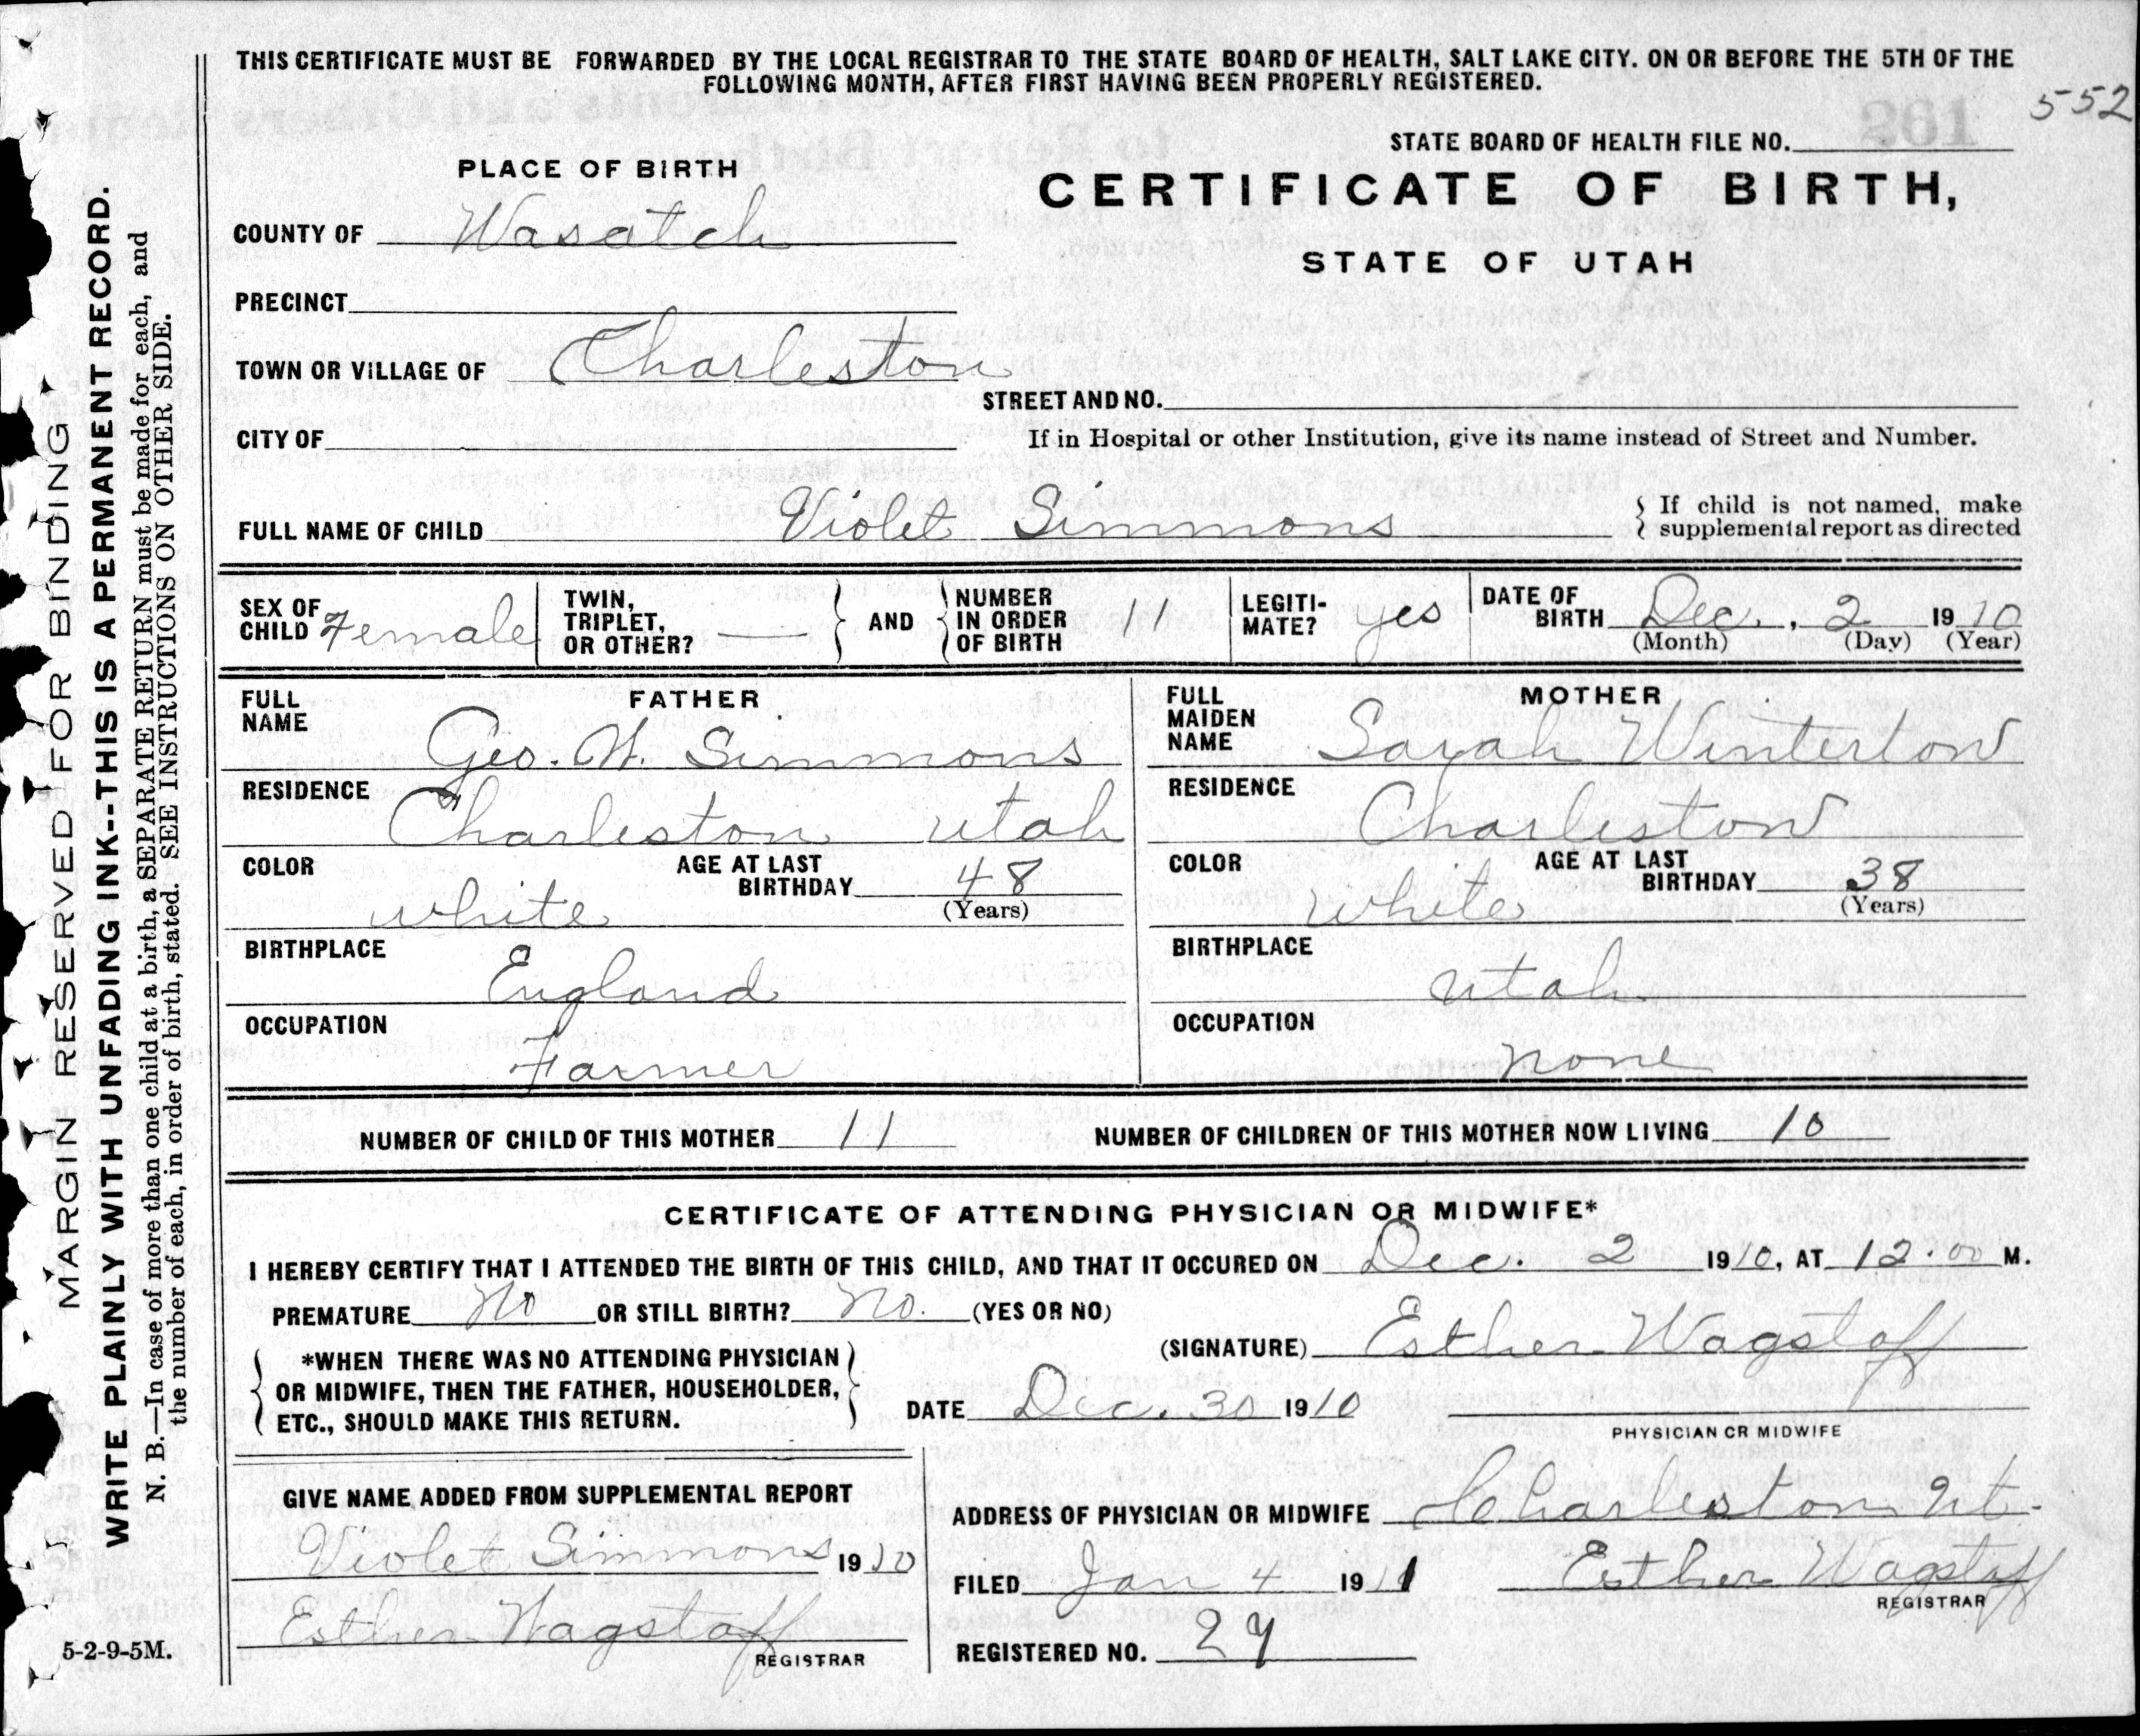 THIS CERTIFICATE MUST BE FORWARDED BY THE LOCAL REGISTRAR TO THE STATE BOARD OF HEALTH, SALT LAKE CITY. ON OR BEFORE THE 5TH OF THE
FOLLOWING MONTH, AFTER FIRST HAVING BEEN PROPERLY REGISTERED.
552
STATE BOARD OF HEALTH FILE NO. 261
PLACE OF BIRTH
CERTIFICATE OF BIRTH,
STATE OF UTAH
COUNTY OF Wasatch
PRECINCT
TOWN OR VILLAGE OF Charleston
STREET AND NO.
CITY OF
If in Hospital or other Institution, give its name instead of Street and Number.
FULL NAME OF CHILD Violet Simmons
If child is not named, make
supplemental report as directed
SEX OF
CHILD Female
TWIN,
TRIPLET,
OR OTHER? —
AND
NUMBER
IN ORDER
OF BIRTH 11
LEGITI-
MATE? yes
DATE OF
BIRTH Dec., 2 1910
(Month) (Day) (Year)
FATHER
FULL
NAME
Geo. W. Simmons
RESIDENCE
Charleston Utah
COLOR
white
AGE AT LAST
BIRTHDAY 48
(Years)
BIRTHPLACE
England
OCCUPATION
Farmer
MOTHER
FULL
MAIDEN
NAME
Sarah Winterton
RESIDENCE
Charleston
COLOR
White
AGE AT LAST
BIRTHDAY 38
(Years)
BIRTHPLACE
Utah
OCCUPATION
none
NUMBER OF CHILD OF THIS MOTHER 11
NUMBER OF CHILDREN OF THIS MOTHER NOW LIVING 10
CERTIFICATE OF ATTENDING PHYSICIAN OR MIDWIFE*
I HEREBY CERTIFY THAT I ATTENDED THE BIRTH OF THIS CHILD, AND THAT IT OCCURED ON Dec. 2 1910, AT 12.00 M.
PREMATURE No OR STILL BIRTH? No. (YES OR NO)
*WHEN THERE WAS NO ATTENDING PHYSICIAN
OR MIDWIFE, THEN THE FATHER, HOUSEHOLDER,
ETC., SHOULD MAKE THIS RETURN.
(SIGNATURE) Esther Wagstaff
DATE Dec. 30 1910
PHYSICIAN OR MIDWIFE
GIVE NAME ADDED FROM SUPPLEMENTAL REPORT
Violet Simmons 1910
Esther Wagstaff
REGISTRAR
ADDRESS OF PHYSICIAN OR MIDWIFE Charleston Ut.
FILED Jan 4 1911
Esther Wagstaff
REGISTRAR
REGISTERED NO. 29
5-2-9-5M.
MARGIN RESERVED FOR BINDING
WRITE PLAINLY WITH UNFADING INK--THIS IS A PERMANENT RECORD.
N. B.—In case of more than one child at a birth, a SEPARATE RETURN must be made for each, and
the number of each, in order of birth, stated. SEE INSTRUCTIONS ON OTHER SIDE.